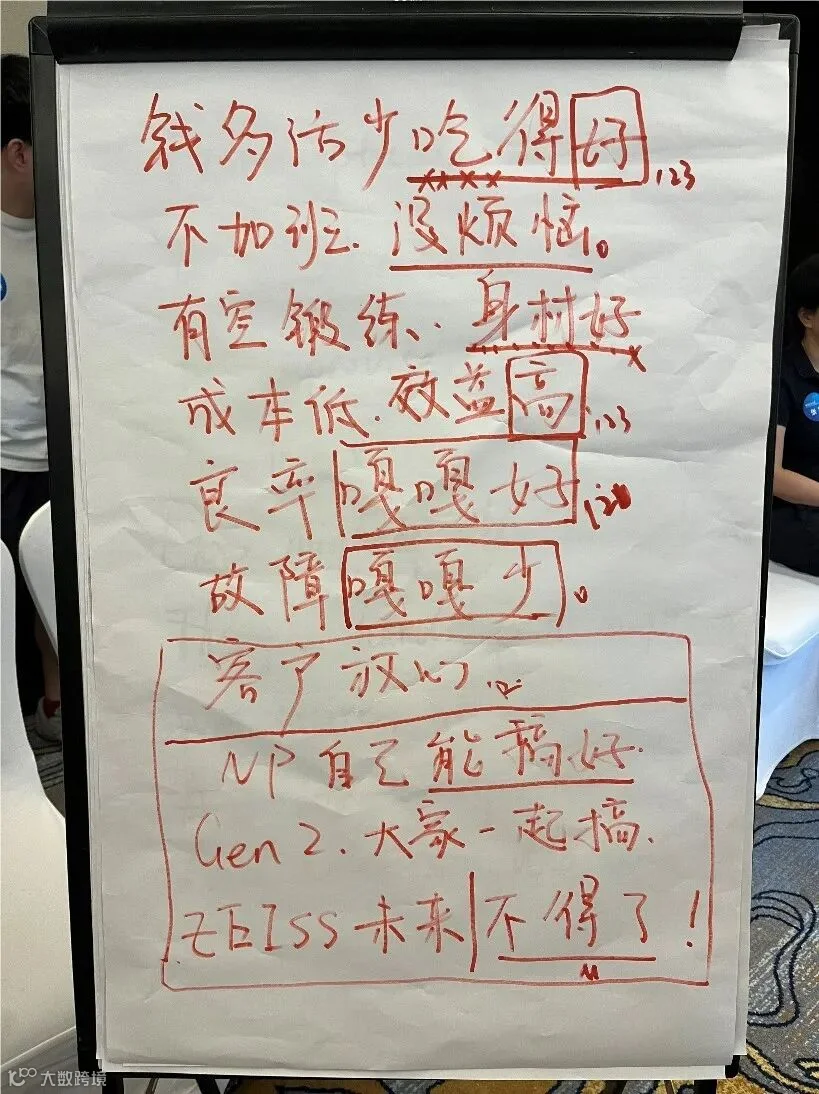 钱多活少吃得好,123
不加班.没烦恼。
有空锻练.身材好
成本低.效益高,123
良率嘎嘎好,123
故障嘎嘎少。
客户放心
NP自己能搞好.
Gen 2.大家一起搞.
ZEISS未来不得了!
大数跨境